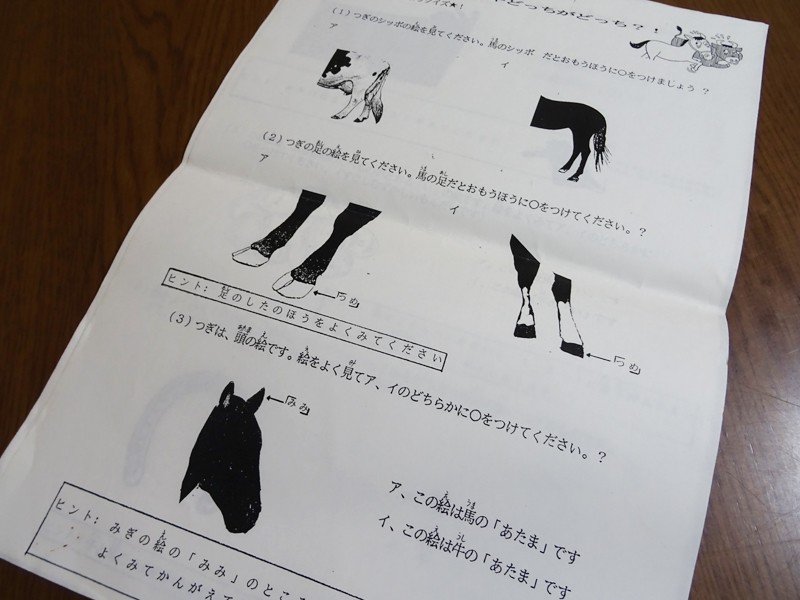 どっちがどっち?!
クイズ★!
(1)つぎのシッポの絵を見てください。馬のシッポ だとおもうほうに○をつけましょう ?
ア
イ
(2)つぎの足の絵を見てください。馬の足だとおもうほうに○をつけてください。?
ア
イ
←「つめ」
←「つめ」
ヒント: 足のしたのほうをよくみてください
(3)つぎは、頭の絵です。絵をよく見てア、イのどちらかに○をつけてください。?
←「みみ」
ア、この絵は馬の「あたま」です
イ、この絵は牛の「あたま」です
ヒント: みぎの絵の「みみ」のところ
よくみてかんがえて